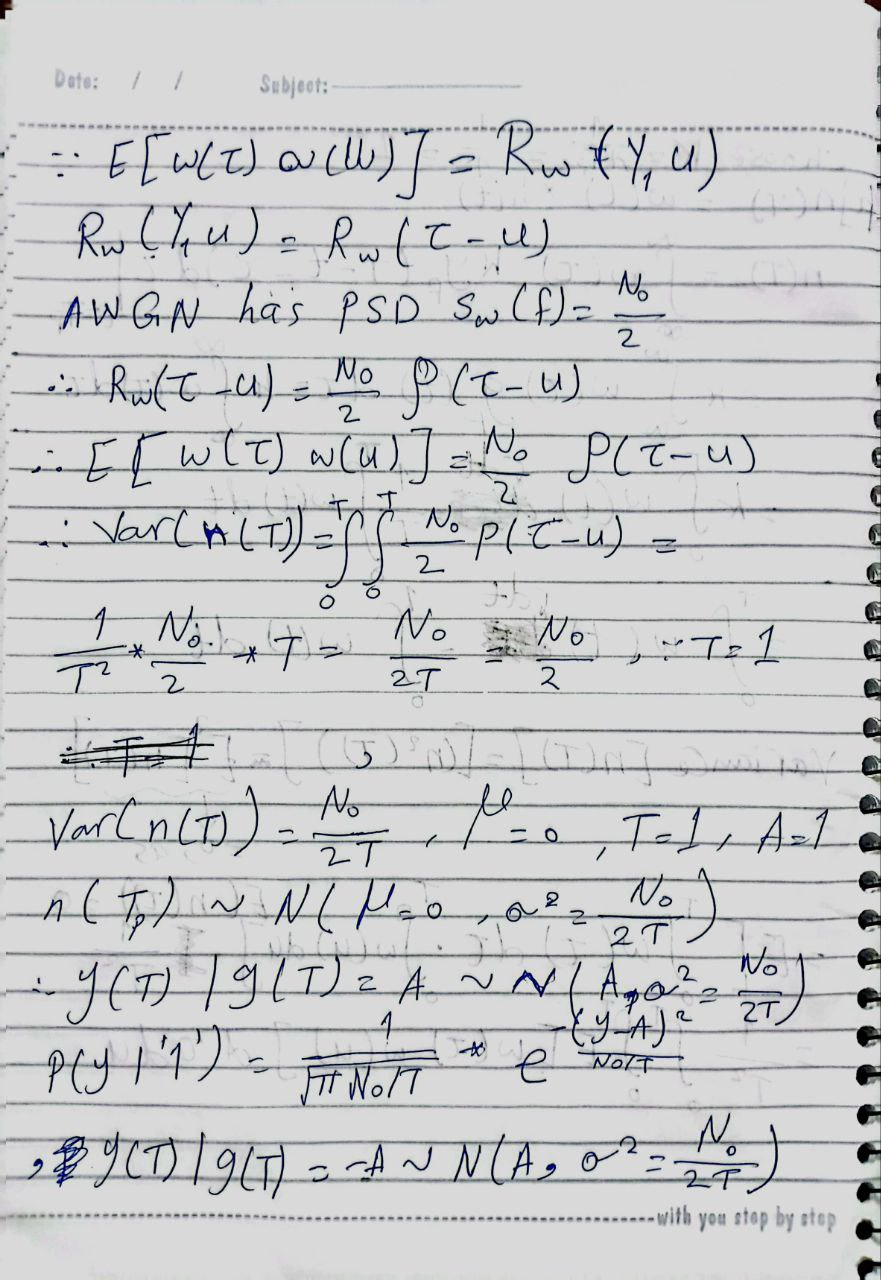 Date: / / Subject:
∵ E[w(τ) w(u)] = R_w (Y, u)
R_w (Y, u) = R_w (τ - u)
AWGN has PSD S_w (f) = N₀/2
∴ R_w(τ - u) = N₀/2 ρ (τ - u)
∴ E[w(τ) w(u)] = N₀/2 ρ(τ - u)
∴ Var(n(T)) = ∫₀ᵀ ∫₀ᵀ N₀/2 ρ(τ - u) =
1/T² * N₀/2 * T = N₀/2T = N₀/2 , ∵ T = 1
Var(n(T)) = N₀/2T , μ = 0 , T = 1 , A = 1
n(T_p) ~ N(μ = 0 , σ² = N₀/2T)
∴ y(T) | g(T) = A ~ N(A, σ² = N₀/2T)
P(y | '1') = 1/√(π N₀/T) * e^(-(y-A)²/(N₀/T))
, y(T) | g(T) = -A ~ N(A, σ² = N₀/2T)
with you step by step